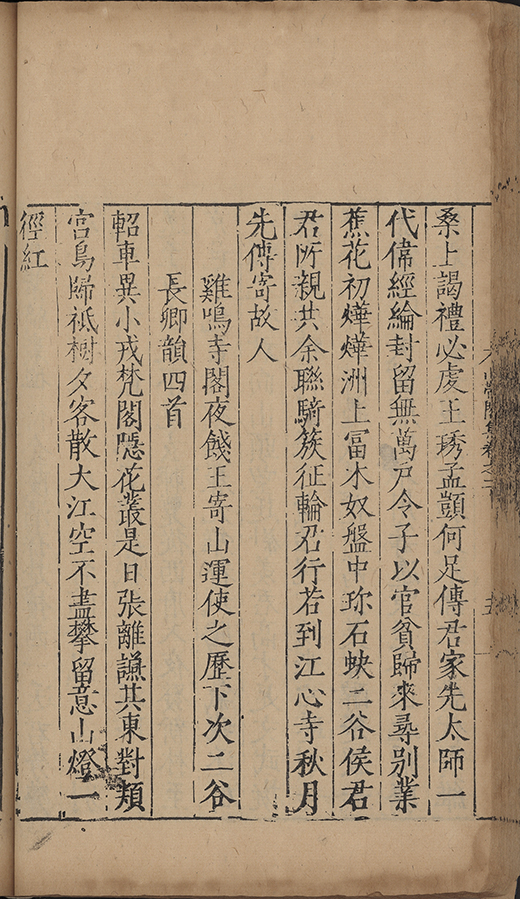 桑上謁禮必虔王琇孟顗何足傳君家先太師一
代偉經綸封留無萬戶令子以官貧歸來尋別業
蕉花初燁燁洲上冨木奴盤中珎石蛈二谷侯君
君所親共余聮騎簇征輪君行若到江心寺秋月
先傳寄故人
雞鳴寺閣夜餞王寄山運使之歷下次二谷
長卿韻四首
軺車異小戎梵閣隠花叢是日張離讌共東對頽
宫鳥歸祗樹夕客散大江空不盡攀留意山燈一
徑紅